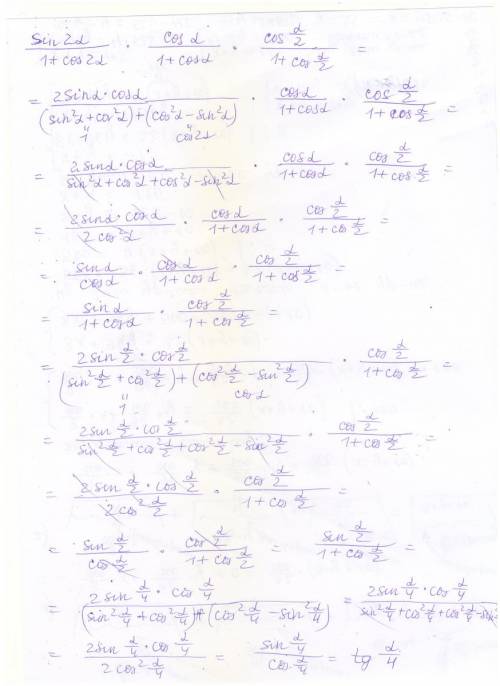 sin2α/(1+cos2α) · cosα/(1+cosα) · cos(α/2)/(1+cos(α/2)) =
= 2sinα·cosα/((sin²α+cos²α)+(cos²α−sin²α)) · cosα/(1+cosα) · cos(α/2)/(1+cos(α/2)) =
1 cos2α
= 2sinα·cosα/(sin²α+cos²α+cos²α−sin²α) · cosα/(1+cosα) · cos(α/2)/(1+cos(α/2)) =
= 2sinα·cosα/(2cos²α) · cosα/(1+cosα) · cos(α/2)/(1+cos(α/2)) =
= sinα/cosα · cosα/(1+cosα) · cos(α/2)/(1+cos(α/2)) =
= sinα/(1+cosα) · cos(α/2)/(1+cos(α/2)) =
= 2sin(α/2)·cos(α/2)/((sin²(α/2)+cos²(α/2))+(cos²(α/2)−sin²(α/2))) · cos(α/2)/(1+cos(α/2)) =
1 cosα
= 2sin(α/2)·cos(α/2)/(sin²(α/2)+cos²(α/2)+cos²(α/2)−sin²(α/2)) · cos(α/2)/(1+cos(α/2)) =
= 2sin(α/2)·cos(α/2)/(2cos²(α/2)) · cos(α/2)/(1+cos(α/2)) =
= sin(α/2)/cos(α/2) · cos(α/2)/(1+cos(α/2)) = sin(α/2)/(1+cos(α/2)) =
= 2sin(α/4)·cos(α/4)/((sin²(α/4)+cos²(α/4))+(cos²(α/4)−sin²(α/4))) = 2sin(α/4)·cos(α/4)/(sin²(α/4)+cos²(α/4)+cos²(α/4)−sin²
= 2sin(α/4)·cos(α/4)/(2cos²(α/4)) = sin(α/4)/cos(α/4) = tg(α/4)